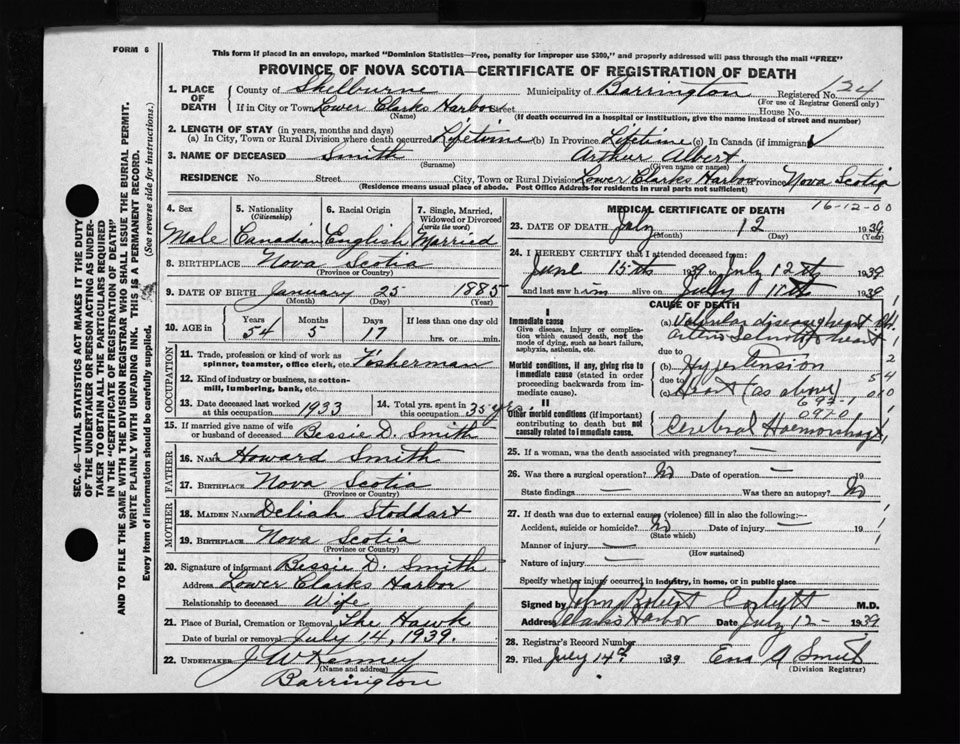 FORM 6
This form if placed in an envelope, marked "Dominion Statistics—Free, penalty for improper use $300," and properly addressed will pass through the mail "FREE"
PROVINCE OF NOVA SCOTIA—CERTIFICATE OF REGISTRATION OF DEATH
1. PLACE OF DEATH County of Shelburne Municipality of Barrington Registered No. 124
(For use of Registrar General only)
If in City or Town Lower Clarks Harbor Street House No.
(Name) (If death occurred in a hospital or institution, give the name instead of street and number)
2. LENGTH OF STAY (in years, months and days)
(a) In City, Town or Rural Division where death occurred Lifetime (b) In Province Lifetime (c) In Canada (if immigrant)
3. NAME OF DECEASED Smith Arthur Albert.
(Surname) (Given name or names)
RESIDENCE No. Street City, Town or Rural Division Lower Clarks Harbor Province Nova Scotia
(Residence means usual place of abode. Post Office Address for residents in rural parts not sufficient)
4. Sex 5. Nationality (Citizenship) 6. Racial Origin 7. Single, Married, Widowed or Divorced (write the word)
Male Canadian English Married
8. BIRTHPLACE Nova Scotia
(Province or Country)
9. DATE OF BIRTH January 25 1885
(Month) (Day) (Year)
10. AGE in Years Months Days If less than one day old
54 5 17 hrs. or min.
OCCUPATION
11. Trade, profession or kind of work as spinner, teamster, office clerk, etc. Fisherman
12. Kind of industry or business, as cotton-mill, lumbering, bank, etc.
13. Date deceased last worked at this occupation 1933 14. Total yrs. spent in this occupation 35 yrs.
15. If married give name of wife or husband of deceased Bessie D. Smith
FATHER
16. Name Howard Smith
17. BIRTHPLACE Nova Scotia
(Province or Country)
MOTHER
18. MAIDEN NAME Deliah Stoddart
19. BIRTHPLACE Nova Scotia
(Province or Country)
20. Signature of informant Bessie D. Smith
Address Lower Clarks Harbor
Relationship to deceased Wife
21. Place of Burial, Cremation or Removal The Hawk
Date of burial or removal July 14, 1939.
22. UNDERTAKER J W Kenney
(Name and address)
Barrington
16-12-00
MEDICAL CERTIFICATE OF DEATH
23. DATE OF DEATH July 12 1939
(Month) (Day) (Year)
24. I HEREBY CERTIFY that I attended deceased from:
June 15th 1939 to July 12th 1939
and last saw him alive on July 11th 1939
CAUSE OF DEATH
I
Immediate cause
Give disease, injury or complication which caused death, not the mode of dying, such as heart failure, asphyxia, asthenia, etc.
(a) Valvular disease heart
due to
Morbid conditions, if any, giving rise to immediate cause (stated in order proceeding backwards from immediate cause).
(b) Hypertension
due to
(c) Heart (as above)
693-1
097-0
II
Other morbid conditions (if important) contributing to death but not causally related to immediate cause.
Cerebral Haemorrhage
25. If a woman, was the death associated with pregnancy? —
26. Was there a surgical operation? No Date of operation — 19
State findings — Was there an autopsy? No
27. If death was due to external causes (violence) fill in also the following:—
Accident, suicide or homicide? No Date of injury — 19
(State which)
Manner of injury —
(How sustained)
Nature of injury —
Specify whether injury occurred in industry, in home, or in public place
Signed by John Robert Corbett M.D.
Address Clarks Harbor Date July 12- 1939
28. Registrar's Record Number
29. Filed July 14th 1939 Ena A Smith
(Division Registrar)
SEC. 46—VITAL STATISTICS ACT MAKES IT THE DUTY
OF THE UNDERTAKER OR PERSON ACTING AS UNDER-
TAKER TO OBTAIN ALL THE PARTICULARS REQUIRED
IN THE "CERTIFICATE OF REGISTRATION OF DEATH"
AND TO FILE THE SAME WITH THE DIVISION REGISTRAR WHO SHALL ISSUE THE BURIAL PERMIT.
WRITE PLAINLY WITH UNFADING INK. THIS IS A PERMANENT RECORD.
Every item of information should be carefully supplied. (See reverse side for instructions.)